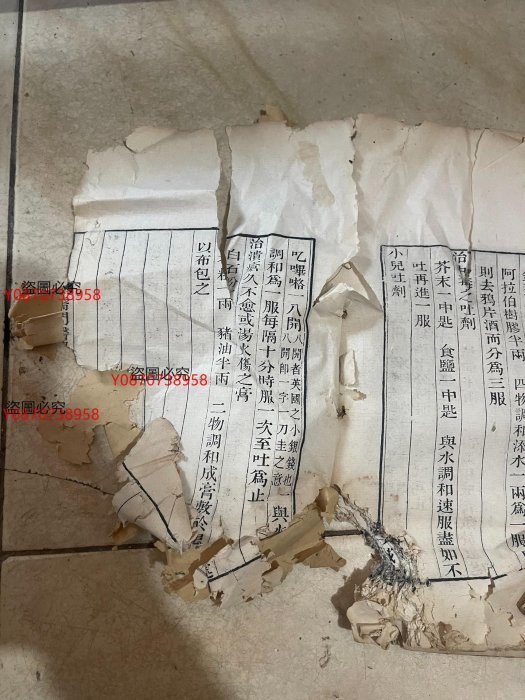 阿拉伯樹膠半兩 四物調和添水一兩爲一服
則去鴉片酒而分爲三服
治毒之吐劑
芥末一中匙 食鹽一中匙 與水調和速服盡如不
吐再進一服
小兒吐劑
吃嗶咯一八開 八開者英國之小銀錢也 八開即一字一刀圭之意 與
調和爲一服每隔十分時服一次至吐爲止
治潰瘍久不愈或湯火傷之膏
白石粉一兩 豬油半兩 二物調和成膏敷於
以布包之
盜圖必究
Y0870738958
盜圖必究
Y0870738958
盜圖必究
Y0870738958